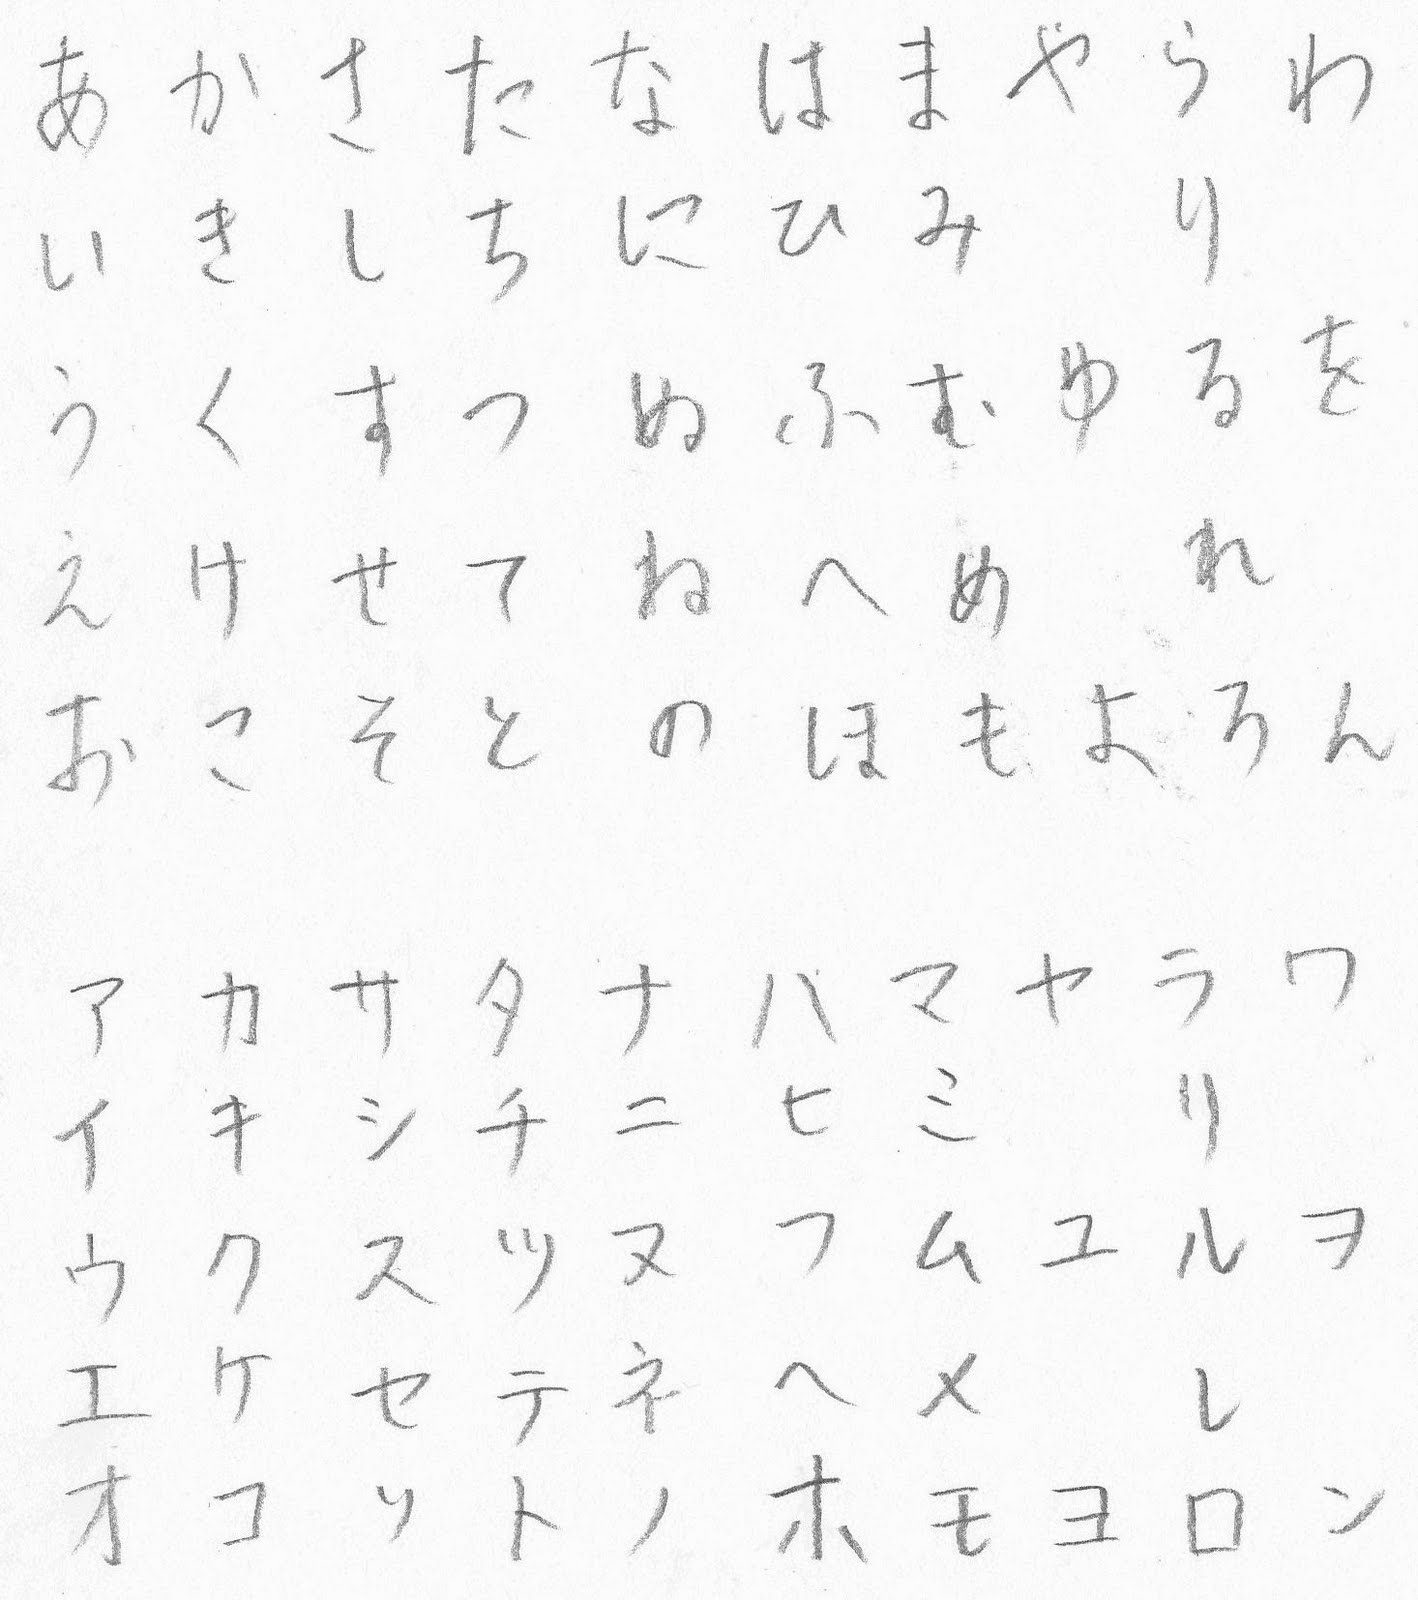 あ か さ た な は ま や ら わ
い き し ち に ひ み り
う く す つ ぬ ふ む ゆ る を
え け せ て ね へ め れ
お こ そ と の ほ も よ ろ ん
ア カ サ タ ナ ハ マ ヤ ラ ワ
イ キ シ チ ニ ヒ ミ リ
ウ ク ス ツ ヌ フ ム ユ ル ヲ
エ ケ セ テ ネ ヘ メ レ
オ コ ソ ト ノ ホ モ ヨ ロ ン